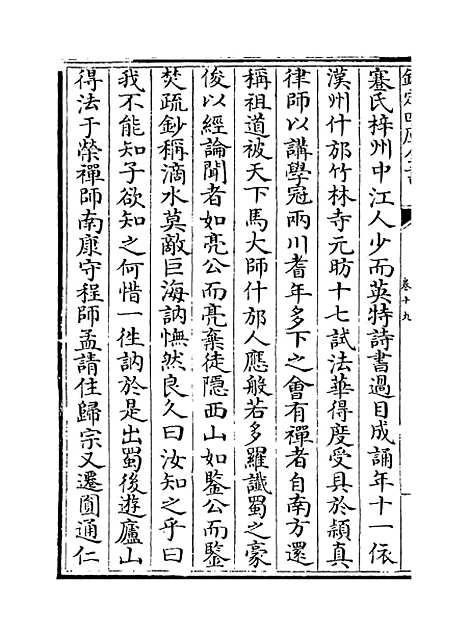 欽定四庫全書
卷十九
蹇氏梓州中江人少而英特詩書過目成誦年十一依
漢州什邡竹林寺元昉十七試法華得度受具於頴真
律師以講學冠兩川耆年多下之會有禪者自南方還
稱祖道被天下馬大師什邡人應般若多羅讖蜀之豪
俊以經論聞者如亮公而亮棄徒隱西山如鑒公而鑒
焚疏鈔稱滴水莫敵巨海訥憮然良久曰汝知之乎曰
我不能知子欲知之何惜一徃訥於是出蜀後遊廬山
得法于榮禪師南康守程師孟請住歸宗又遷圓通仁